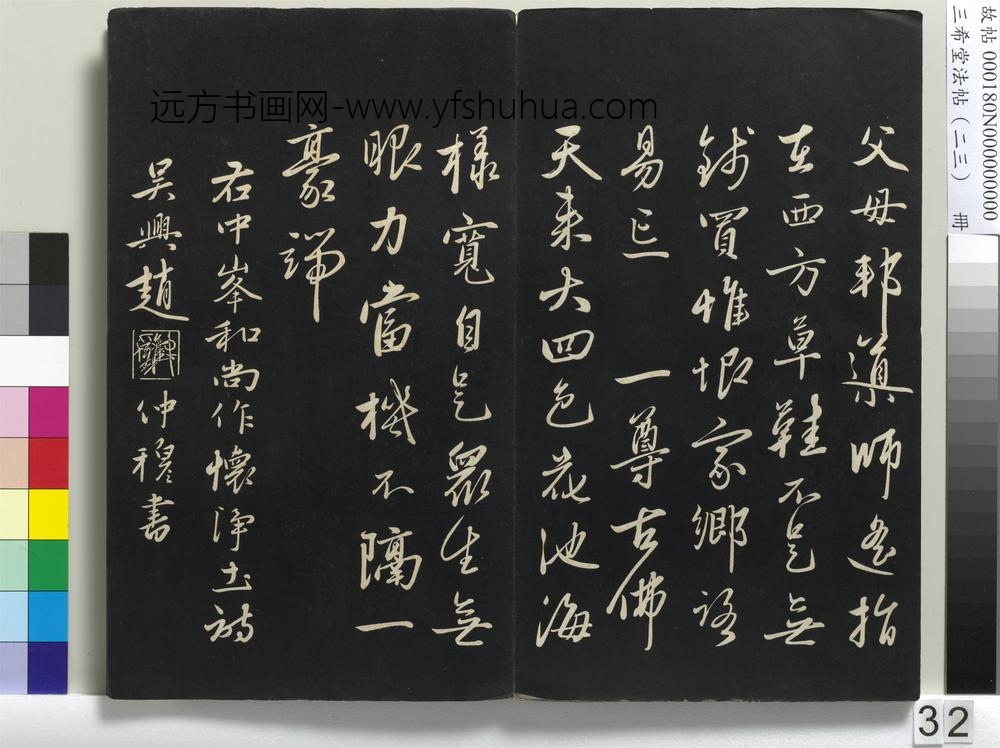 远方书画网-www.yfshuhua.com
父母邦導師遙指
在西方草鞋不是無
錢買惟恨家鄉路
易忘 一尊古佛
天來大四色花池海
樣寬自是眾生無
眼力當機不隔一
豪端
右中峯和尚作懷淨土詩
吳興趙 仲穆書
故帖 000180N000000000
三希堂法帖（二三） 冊
32